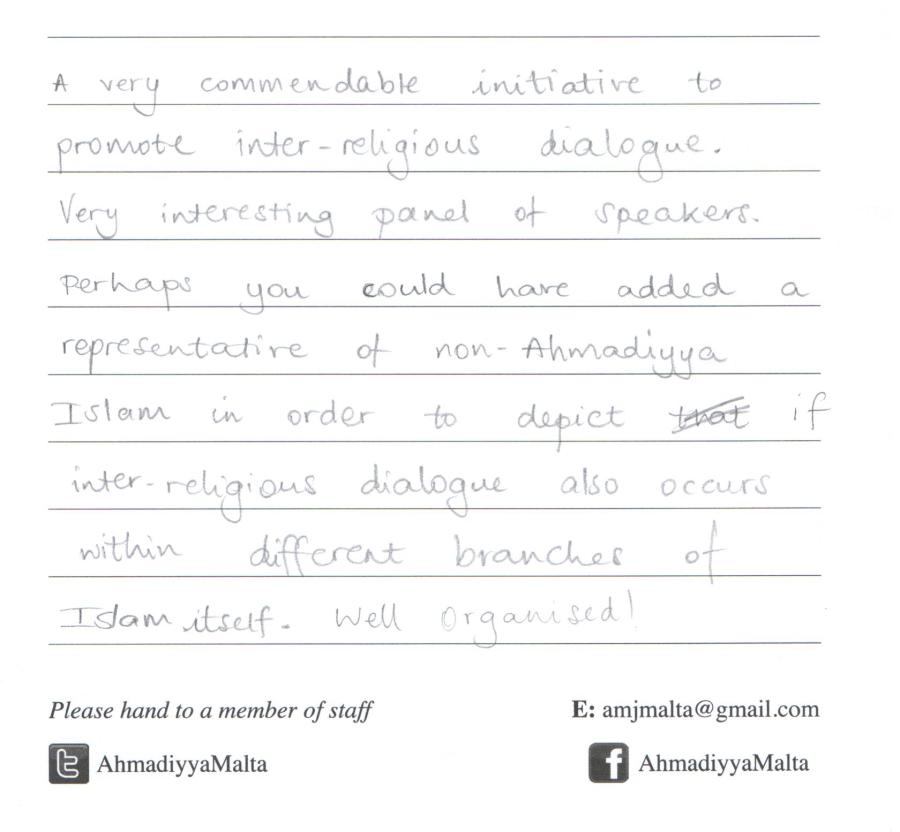 A very commendable initiative to
promote inter-religious dialogue.
Very interesting panel of speakers.
Perhaps you could have added a
representative of non-Ahmadiyya
Islam in order to depict that if
inter-religious dialogue also occurs
within different branches of
Islam itself. Well organised!
Please hand to a member of staff
E: amjmalta@gmail.com
AhmadiyyaMalta
AhmadiyyaMalta